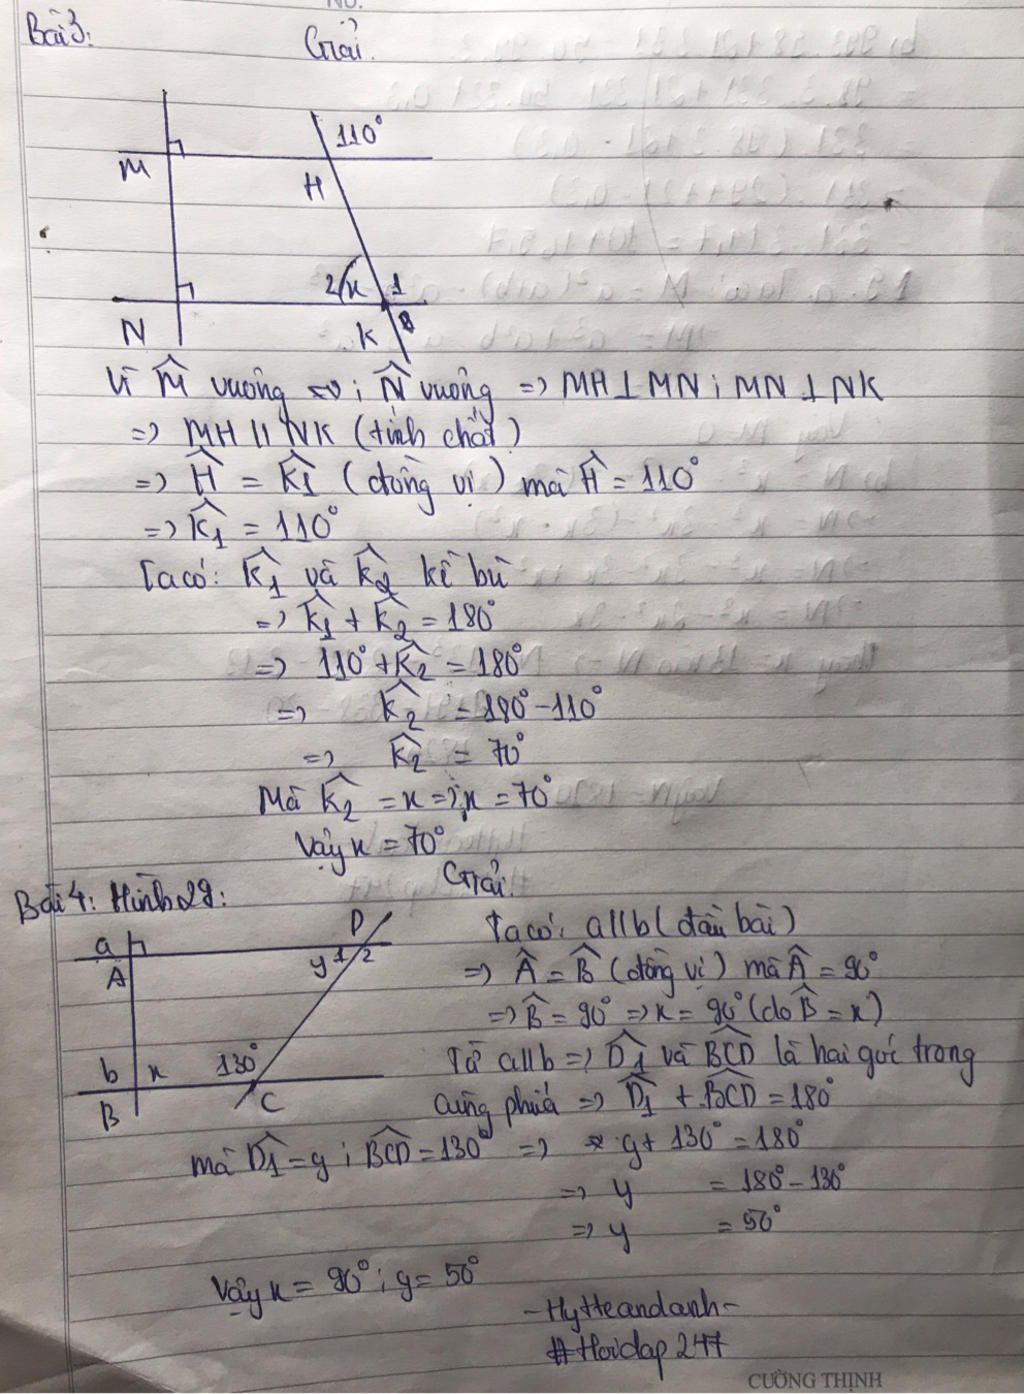 Bài 3:
Giải.
110°
M
H
2 x 1
N
K
Vì M̂ vuông ; N̂ vuông => MH⊥MN ; MN⊥NK
=> MH // NK (tính chất)
=> Ĥ = K̂1 (đồng vị) mà Ĥ = 110°
=> K̂1 = 110°
Ta có: K̂1 và K̂2 kề bù
=> K̂1 + K̂2 = 180°
=> 110° + K̂2 = 180°
=> K̂2 = 180° - 110°
=> K̂2 = 70°
Mà K̂2 = x => x = 70°
Vậy x = 70°
Giải.
Bài 4: Hình 29:
D
a
A
y 1 2
b x 130°
B
C
Ta có: a//b (đầu bài)
=> Â = B̂ (đồng vị) mà Â = 90°
=> B̂ = 90° => x = 90° (do B̂ = x)
Từ a//b => D̂1 và BCD̂ là hai góc trong
cùng phía => D̂1 + BCD̂ = 180°
mà D̂1 = y ; BCD̂ = 130° => y + 130° = 180°
=> y = 180° - 130°
=> y = 50°
Vậy x = 90° ; y = 50°
-Hytteandanh-
#Hoidap 247
CƯỜNG THỊNH